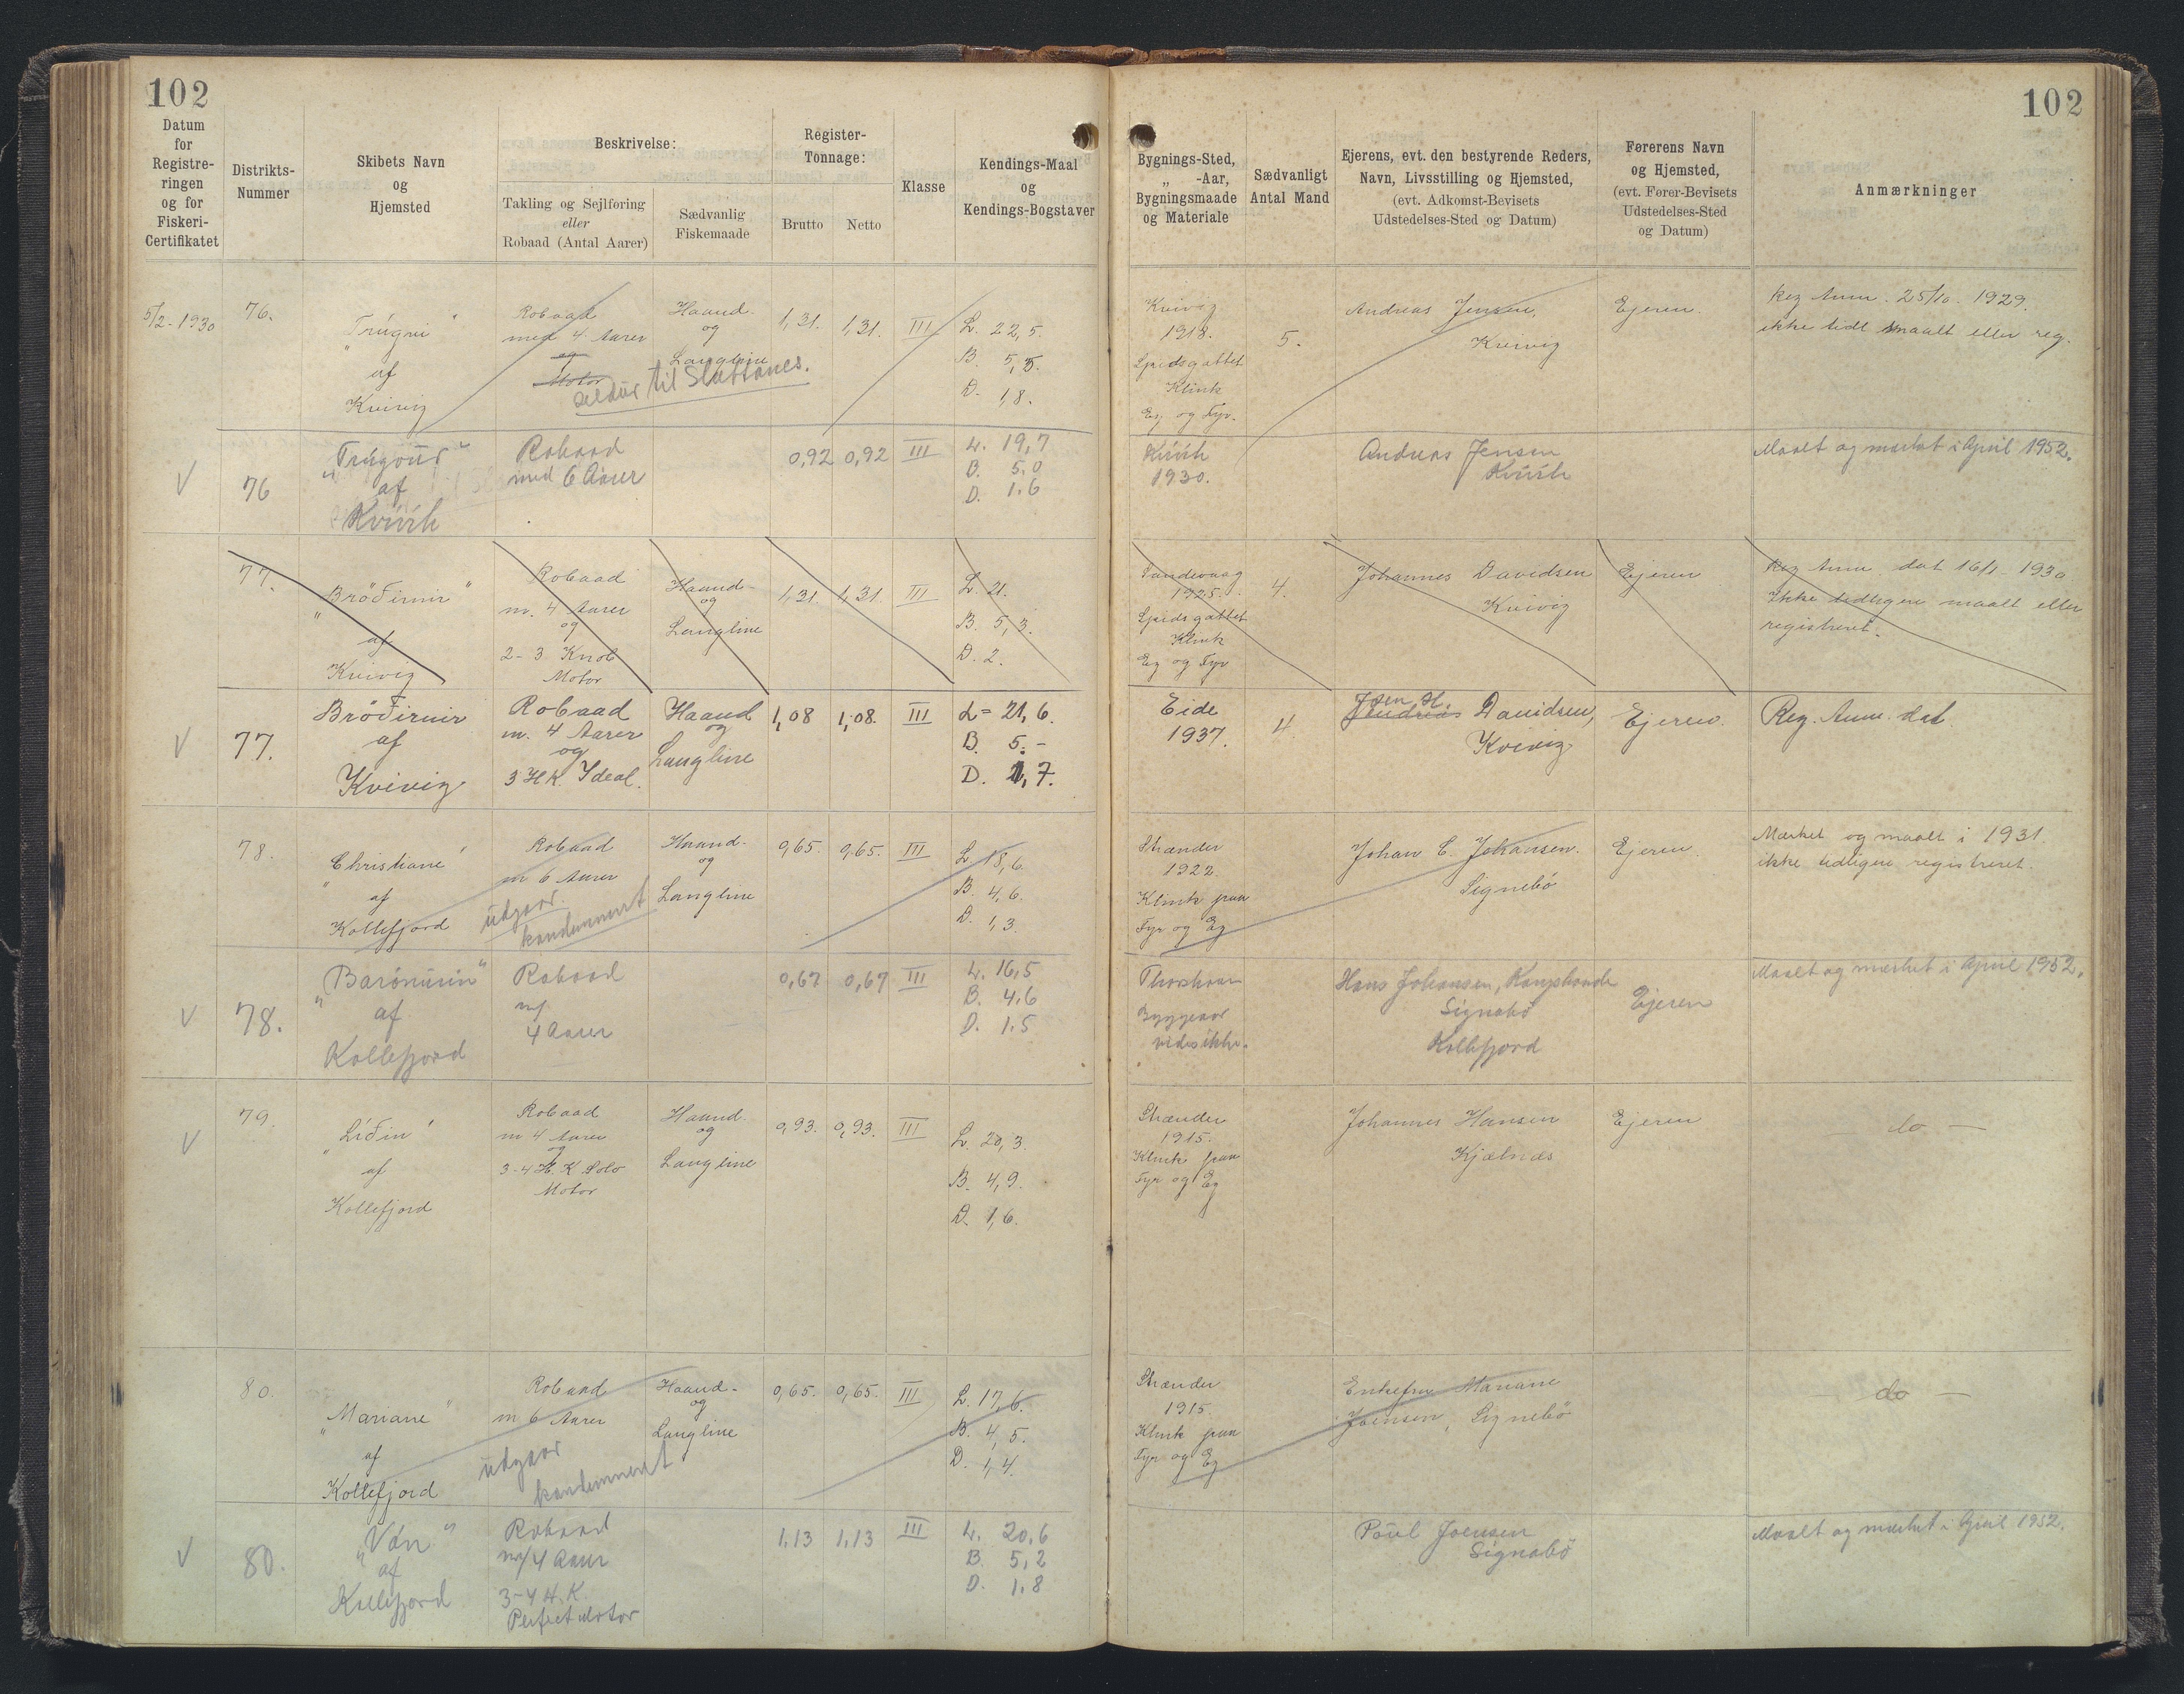 102
102
Datum
for
Registre-
ringen
og for
Fiskeri-
Certifikatet
Distrikts-
Nummer
Skibets Navn
og
Hjemsted
Beskrivelse:
Takling og Sejlføring
eller
Robaad (Antal Aarer)
Sædvanlig
Fiskemaade
Register-
Tonnage:
Brutto
Netto
Klasse
Kendings-Maal
og
Kendings-Bogstaver
Bygnings-Sted,
„ -Aar,
Bygningsmaade
og Materiale
Sædvanligt
Antal Mand
Ejerens, evt. den bestyrende Reders,
Navn, Livsstilling og Hjemsted,
(evt. Adkomst-Bevisets
Udstedelses-Sted og Datum)
Førerens Navn
og Hjemsted,
(evt. Fører-Bevisets
Udstedelses-Sted
og Datum)
Anmærkninger
5/2-1930
76.
„Trúgvi"
af
Kvivig
Robaad
med 4 Aarer
og
Motor
til
Haand-
og
Langline
1,31.
1,31.
III
L. 22,5.
B. 5,5.
D. 1,8.
Kvivig
1918.
Spidsgattet
Klink
Eg og Fyr.
5.
Andreas Jensen,
Kvivig
Ejeren.
Reg Anm. 25/10. 1929.
ikke tidl maalt eller reg.
V
76
af
Kvívík
Robaad
med 6 Aarer
0,92
0,92
III
L. 19,7
B. 5,0
D. 1,6
Kvívík
1930.
Andreas Jensen
Kvívík
Maalt og mærket i April 1952.
77.
„Brøðirnir"
af
Kvivig
Robaad
m. 4 Aarer
og
2-3 Knob
Motor
Haand-
og
Langline
1,31.
1,31.
III
L. 21.
B. 5,3.
D. 2.
Sandevaag
1925.
Spidsgattet
Klink
Eg og Fyr
4.
Johannes Davidsen
Kvivig
Ejeren
Reg Anm dat 16/1-1930
Ikke tidligere maalt eller
registreret.
V
77.
Brøðirnir
af
Kvivig
Robaad
m. 4 Aarer
og
3 HK. Ideal.
Haand
og
Langline
1,08
1,08.
III
L = 21,6.
B. 5.-
D. 1,7.
Eide
1937.
4
Joen H.
Andreas Davidsen,
Kvivig
Ejeren.
Reg. Anm. dat.
78.
„Christiane"
af
Kollefjord
Robaad
m 6 Aarer
udgaar.
kondemneret
Haand-
og
Langline
0,65.
0,65.
III
L. 18,6.
B. 4,6.
D. 1,3.
Strænder
1922.
Klink paa
Fyr og Eg
Johan C. Johansen.
Signebö
Ejeren
Mærket og maalt i 1931
ikke tidligere registreret.
V
78.
af
Kollefjord
Robaad
m/
4 Aarer
0,67
0,67
III
L. 16,5
B. 4,6
D. 1,5
Thorshavn
Byggeaar
vides ikke.
Hans Johansen,
Signabö
Kollefjord
Ejeren
Maalt og mærket i April 1952.
V
79.
„Líðin"
af
Kollefjord
Robaad
m 4 Aarer
og
3-4 H.K Solo
Motor
Haand-
og
Langline
0,93.
0,93.
III
L. 20,3.
B. 4,9.
D. 1,6.
Strænder
1915.
Klink paa
Fyr og Eg
Johannes Hansen
Kjælnæs
Ejeren
— do —
80.
„Mariane"
af
Kollefjord
Robaad
m 6 Aarer
udgaar
kondemneret
Haand-
og
Langline
0,65.
0,65.
III
L. 17,6.
B. 4,5.
D. 1,4.
Strænder
1915.
Klink paa
Fyr og Eg
Enkefru Mariane
Joensen, Signebö
— do —
V
80.
„Vón"
af
Kollefjord
Robaad
m/4 Aarer
3-4 H.K.
Perfect Motor
1,13
1,13
III
L. 20,6
B. 5,2
D. 1,8
Poul Joensen
Signabö
Maalt og mærket i April 1952.